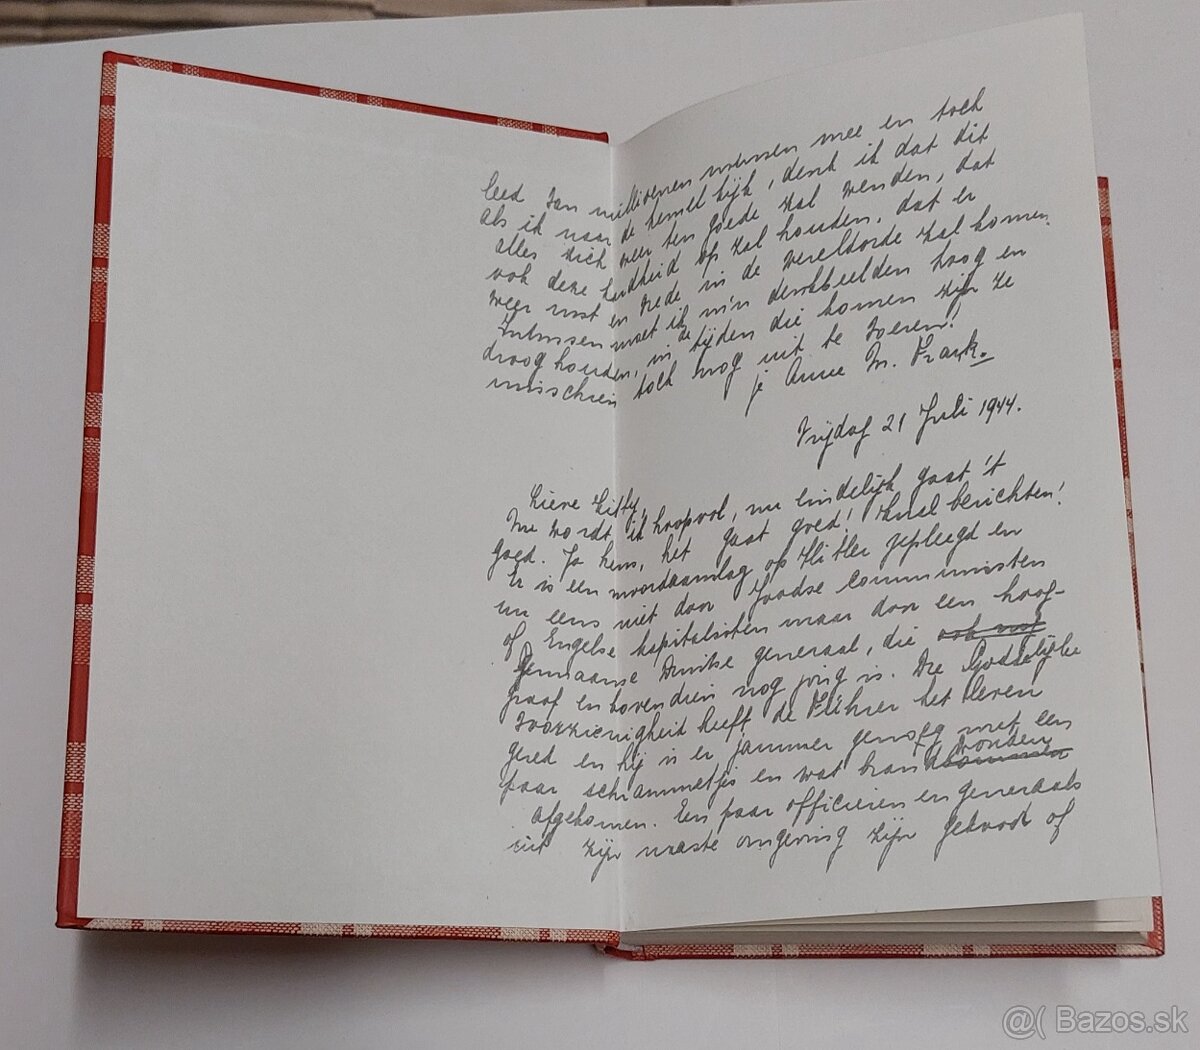 leed van millioenen mensen mee en toch
als ik naar de hemel kijk, denk ik dat dit
alles zich weer ten goede zal wenden, dat
ook deze hardheid op zal houden, dat er
weer rust en vrede in de wereldorde zal komen.
Intussen moet ik m'n denkbeelden hoog en
droog houden, in de tijden die komen zijn ze
misschien toch nog uit te voeren!
je Anne M. Frank.
Vrijdag 21 Juli 1944.
Lieve Kitty,
Nu wordt ik hoopvol, nu eindelijk gaat 't
goed. Ja heus, het gaat goed! Knal berichten!
Er is een moordaanslag op Hitler gepleegd en
nu eens niet door Joodse communisten
of Engelse kapitalisten maar door een hoog-
germaanse Duitse generaal, die ook nog
graaf en bovendien nog jong is. De Goddelijke
voorzienigheid heeft de Führer het leven
gered en hij is er jammer genoeg met een
paar schrammetjes en wat brandwonden
afgekomen. Een paar officieren en generaals
uit zijn naaste omgeving zijn gedood of
@( Bazos.sk